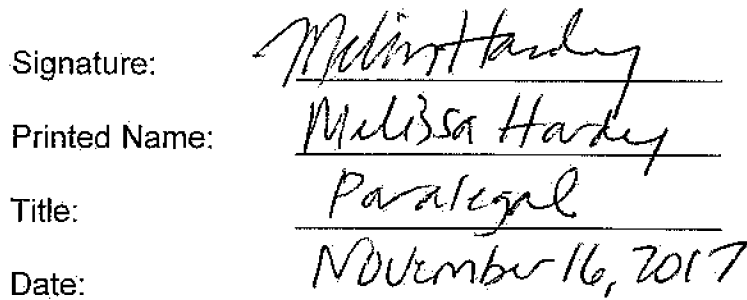 Signature: Melissa Hardy
Printed Name: Melissa Hardy
Title: Paralegal
Date: November 16, 2017